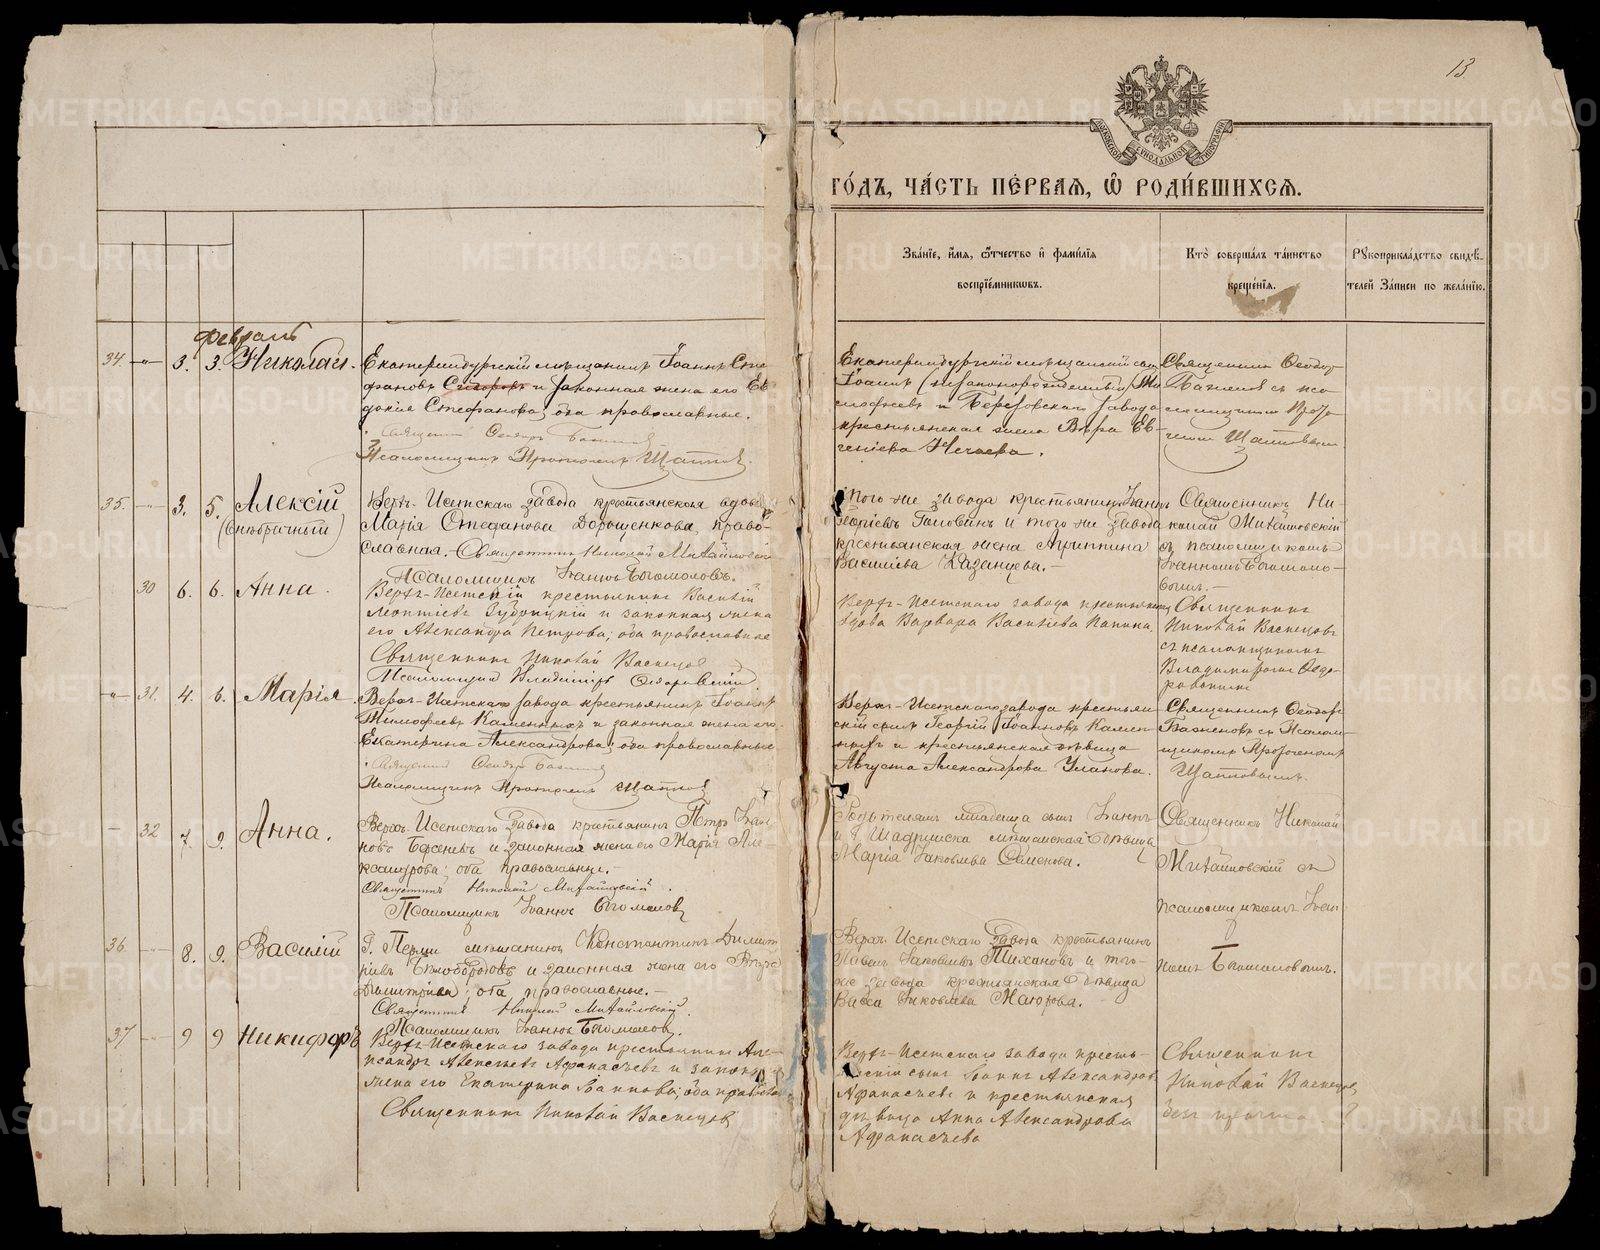 13
МОСКОВСКОЙ СѴНОДАЛЬНОЙ ТИПОГРАФІИ
ГО́ДЪ, ЧА́СТЬ ПЕ́РВАѦ, Ѡ҆ РОДИ́ВШИХСѦ.
Зва́нїе, и҆́мѧ, ѻ҆́тчество и҆ фами́лїѧ
воспрїе́мникѡвъ.
Кто̀ соверша́лъ та́инство
креще́нїѧ.
Рꙋкоприкла́дство свидѣ́-
телей За́писи по жела́нїю.
Февраль
34. -"- 3. 3. Николай.
Екатеринбургскій мѣщанинъ Іоаннъ Сте-
фановъ и законная жена его Ев-
докія Стефанова, оба православные.
Священникъ Ѳеодоръ Баженовъ
Псаломщикъ Протогенъ Щаповъ
Екатеринбургскій мѣщанскій сынъ
Іоаннъ (незаконорожденный) Ти-
моѳеевъ и Березовскаго завода
крестьянская жена Вѣра Ев-
геніева Нечаева.
Священникъ Ѳеодоръ
Баженовъ съ пса-
ломщикомъ Прото-
геномъ Щаповымъ
35. -"- 3. 5. Алексій
(внѣбрачный)
Верх-Исетскаго завода крестьянская вдова
Марія Стефанова Дорошенкова, право-
славная. Священникъ Николай Михайловскій
Псаломщикъ Іоаннъ Богомоловъ.
Того-же завода крестьянинъ Іоаннъ
Георгіевъ Головинъ и того-же завода
крестьянская жена Агриппина
Васильева Казанцева.
Священникъ Ни-
колай Михайловскій
съ псаломщикомъ
Іоанномъ Богомоло-
вымъ.
30 6. 6. Анна.
Верх-Исетскій крестьянинъ Василій
Леонтіевъ и законная жена
его Александра Петрова; оба православные
Священникъ Николай Васнецовъ
Псаломщикъ Владиміръ Ѳедоровскій
Верх-Исетскаго завода крестьянская
вдова Варвара Васильева Папина.
Священникъ
Николай Васнецовъ
съ псаломщикомъ
Владиміромъ Ѳедо-
-"- 31. 4. 6. Марія.
Верхъ-Исетскаго завода крестьянинъ Іоаннъ
Тимоѳеевъ Каменныхъ и законная жена его
Екатерина Александрова; оба православные
Священникъ Ѳеодоръ Баженовъ
Псаломщикъ Протогенъ Щаповъ
Верхъ-Исетскаго завода крестьян-
скій сынъ Георгій Іоанновъ Камен-
ныхъ и крестьянская дѣвица
Августа Александрова Уланова.
Священникъ Ѳеодоръ
Баженовъ съ Псалом-
щикомъ Протогеномъ
Щаповымъ.
- 32 7. 9. Анна.
Верхъ-Исетскаго Завода крестьянинъ Петръ Іоан-
новъ и законная жена его Марія Але-
ксандрова; оба православные.
Священникъ Николай Михайловскій.
Псаломщикъ Іоаннъ Богомоловъ
Родителямъ младенца сынъ Іоаннъ
и г. Шадринска мѣщанская дѣвица
Марія Іаковлева Семенова.
Священникъ Николай
Михайловскій съ
псаломщикомъ Іоан-
номъ Богомоловымъ.
36 -"- 8. 9. Василій
Г. Перми мѣщанинъ Константинъ Димит-
ріевъ Бѣлобородовъ и законная жена его
Димитріева; оба православные.
Священникъ Николай Михайловскій.
Псаломщикъ Іоаннъ Богомоловъ.
Верхъ-Исетскаго Завода крестьянинъ
Павелъ Іаковлевъ Тихановъ и того-
же завода крестьянская дѣвица
Васса Іаковлева Маюрова.
37 -"- 9 9 Никифоръ
Верх-Исетскаго завода крестьянинъ Але-
ксандръ Алексѣевъ Афанасьевъ и законная
жена его Екатерина Іоаннова; оба православные
Священникъ Николай Васнецовъ
Верх-Исетскаго завода кресть-
янскій сынъ Іоаннъ Александровъ
Афанасьевъ и крестьянская
дѣвица Анна Александрова
Афанасьева
Священникъ
Николай Васнецовъ,
безъ причта